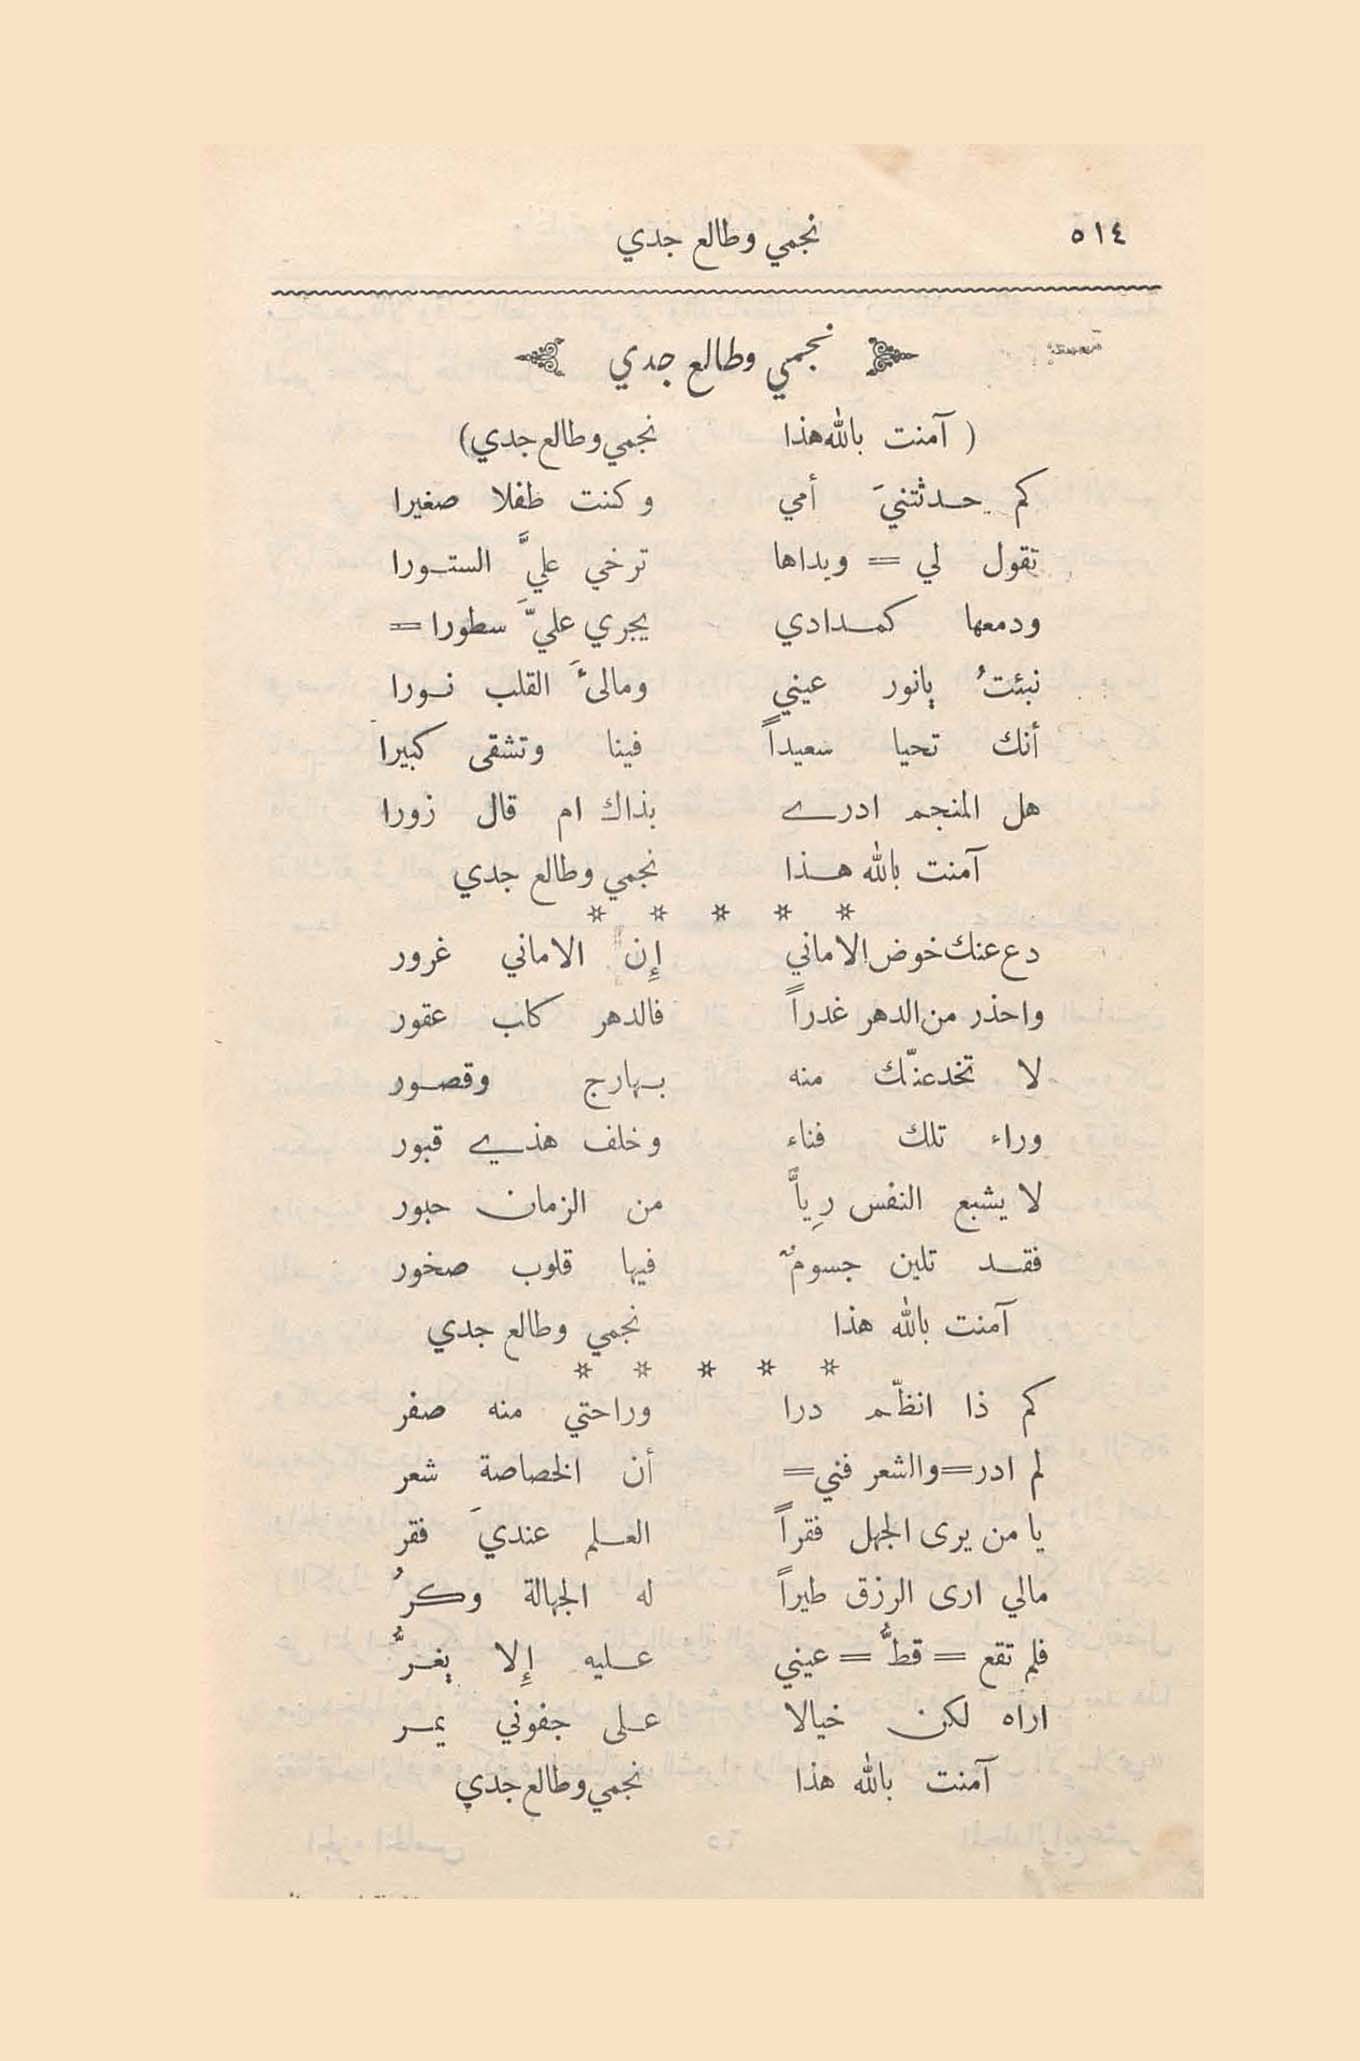 ٥١٤ نجمي وطالع جدي
نجمي وطالع جدي
( آمنت بالله هذا نجمي وطالع جدي)
كم حدثتنيَ أمي وكنت طفلا صغيرا
تقول لي = ويداها ترخي عليَّ الستورا
ودمعها كمدادي يجري عليَّ سطورا =
نبئتُ يانور عيني ومالىءَ القلب نورا
أنك تحيا سعيداً فينا وتشقى كبيرا
هل المنجم ادرے بذاك ام قال زورا
آمنت بالله هذا نجمي وطالع جدي
* * * * *
دع عنك خوض الاماني إِن الاماني غرور
واحذر من الدهر غدراً فالدهر كاب عقور
لا تخدعنّك منه بهارج وقصور
وراء تلك فناء وخلف هذي قبور
لا يشبع النفس رِياًّ من الزمان حبور
فقد تلين جسومٌ فيها قلوب صخور
آمنت بالله هذا نجمي وطالع جدي
* * * * *
كم ذا انظّم درا وراحتي منه صفر
لم ادر = والشعر فني = أن الخصاصة شعر
يا من يرى الجهل فقراً العلم عنديَ فقر
مالي ارى الرزق طيراً له الجهالة وكرُ
فلم تقع = قطُّ = عيني عليه إِلا يغرُّ
اراه لكن خيالا على جفوني يمر
آمنت بالله هذا نجمي وطالع جدي